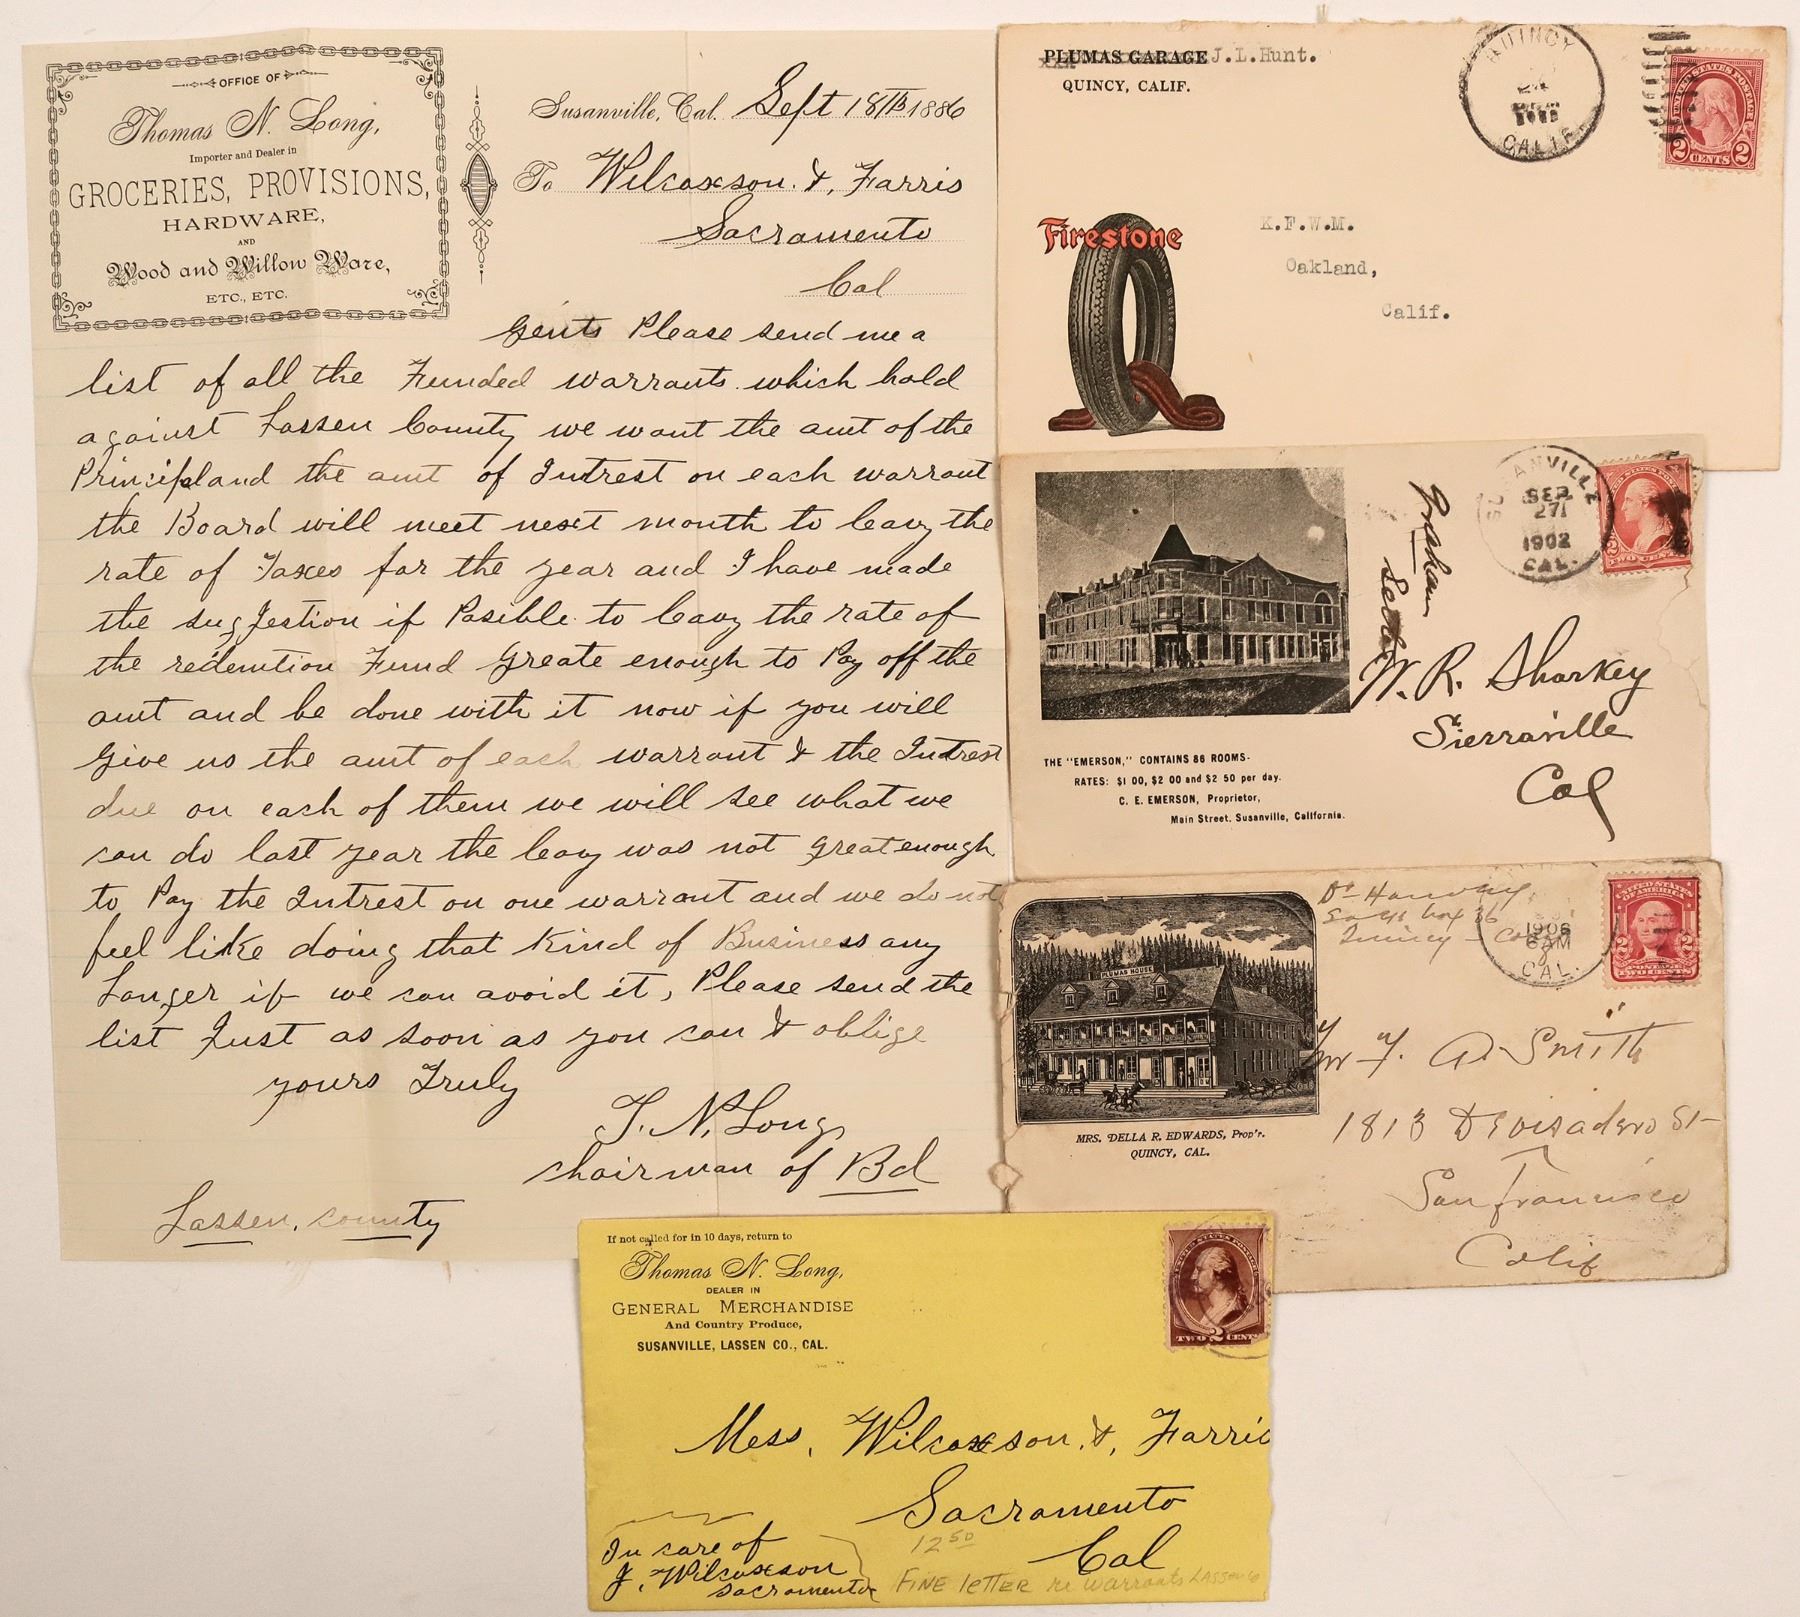 OFFICE OF
Thomas N. Long,
Importer and Dealer in
GROCERIES, PROVISIONS,
HARDWARE,
AND
Wood and Willow Ware,
ETC., ETC.
Susanville, Cal. Sept 18TH 1886
To Wilcoxson. &, Farris
Sacramento
Cal
Gents Please send me a
list of all the Funded warrants which hold
against Lassen County we want the amt of the
Principland the amt of Intrest on each warrant
the Board will meet next month to leavy the
rate of Taxes for the year and I have made
the sugjestion if Posible to leavy the rate of
the redemtion Fund Greate enough to Pay off the
amt and be done with it now if you will
Give us the amt of each warrant & the Intrest
due on each of them we will see what we
can do last year the leavy was not Great enough
to Pay the Intrest on one warrant and we do not
feel like doing that Kind of Business any
Longer if we can avoid it, Please send the
list Just as soon as you can & oblige
yours Truly
T. N. Long
chairman of Bd
Lassen. county
PLUMAS GARAGE J.L.Hunt.
QUINCY, CALIF.
QUINCY
CALIF.
UNITED STATES POSTAGE
2 CENTS 2
Firestone
K.F.W.M.
Oakland,
Calif.
SUSANVILLE
SEP
27
1902
CAL.
TWO CENTS
Graham
W. R. Sharkey
Sierraville
Cal
THE "EMERSON," CONTAINS 86 ROOMS-
RATES: $1 00, $2 00 and $2 50 per day.
C. E. EMERSON, Proprietor,
Main Street. Susanville, California.
Dr Harvey
Box 36
Quincy
1906
6AM
CAL.
UNITED STATES
OF AMERICA
2 2
POSTAGE
TWO CENTS
PLUMAS HOUSE
MRS. DELLA R. EDWARDS, Prop'r.
QUINCY, CAL.
A. Smith
1813 Devisadero St-
San Francisco
Calif
If not called for in 10 days, return to
Thomas N. Long,
DEALER IN
GENERAL MERCHANDISE
And Country Produce,
SUSANVILLE, LASSEN CO., CAL.
UNITED STATES POSTAGE
TWO 2 CENTS
Mess, Wilcoxson. &, Farris
Sacramento
Cal
In care of
J. Wilcoxson
Sacramento
12 50
FINE letter re warrants LASSEN Co